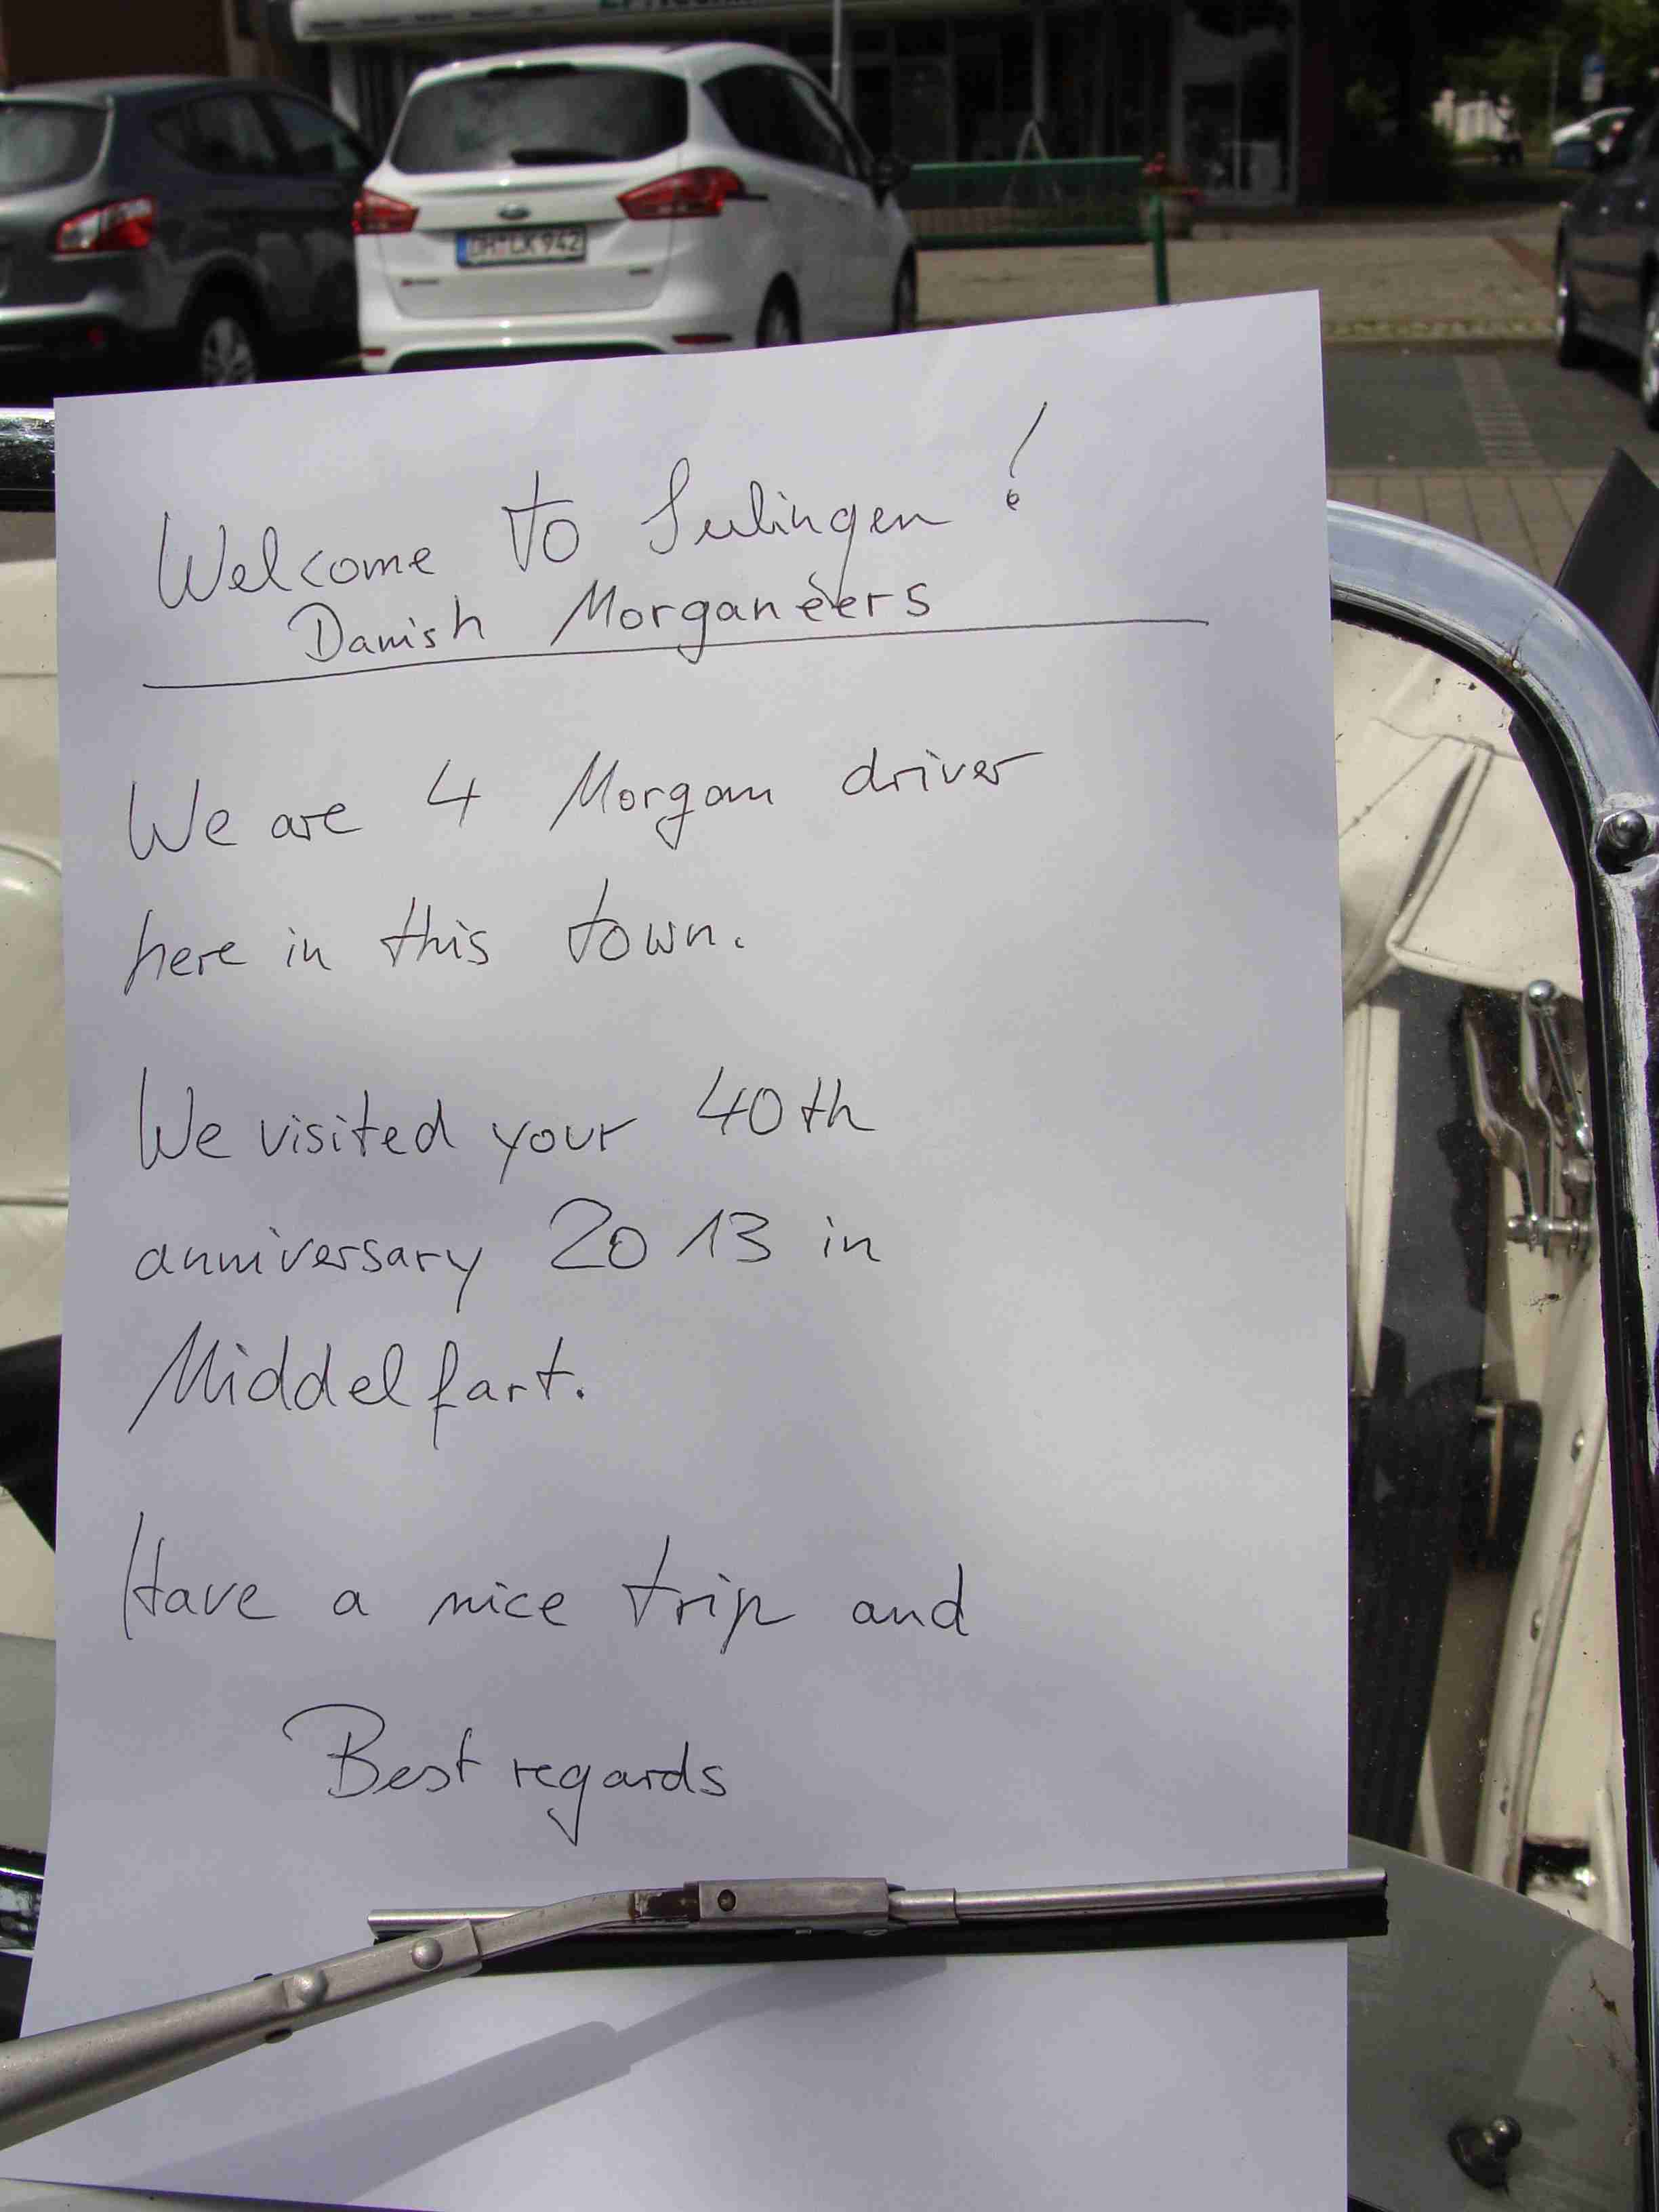 DH LK 942
Welcome to Sulingen !
Danish Morganeers
We are 4 Morgan driver
here in this town.
We visited your 40th
anniversary 2013 in
Middelfart.
Have a nice trip and
Best regards